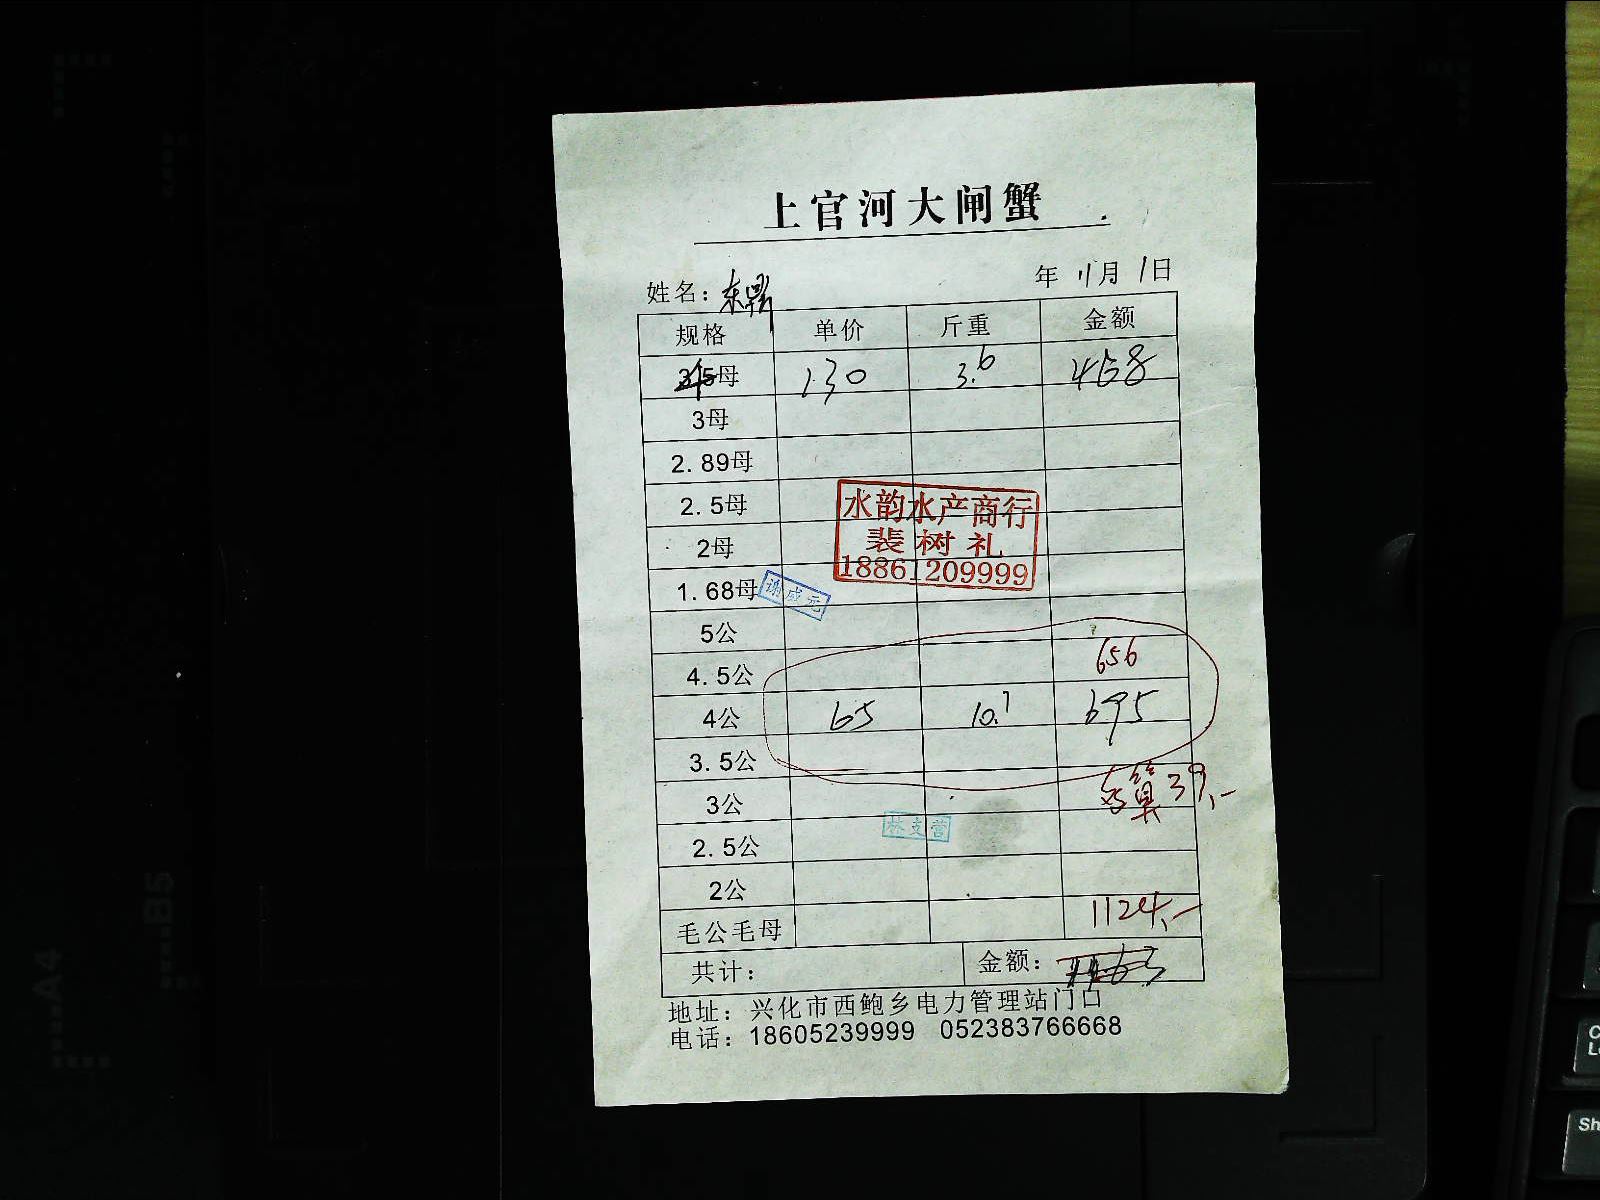 上官河大闸蟹
姓名：东鼎 年 11月 1日
规格 单价 斤重 金额
母 130 3.6 468
3母
2.89母
2.5母
2母
1.68母
水韵水产商行
裴树礼
18861209999
谢盛元
5公
4.5公 656
4公 65 10.7 695
3.5公
3公 算39.-
2.5公
林支营
2公
毛公毛母 1124.-
共计： 金额：1163
地址：兴化市西鲍乡电力管理站门口
电话：18605239999 052383766668